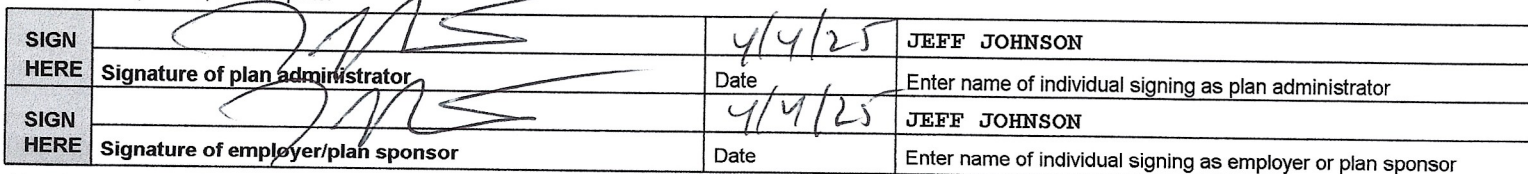 SIGN HERE
4/4/25 JEFF JOHNSON
Signature of plan administrator Date Enter name of individual signing as plan administrator
SIGN HERE
4/4/25 JEFF JOHNSON
Signature of employer/plan sponsor Date Enter name of individual signing as employer or plan sponsor